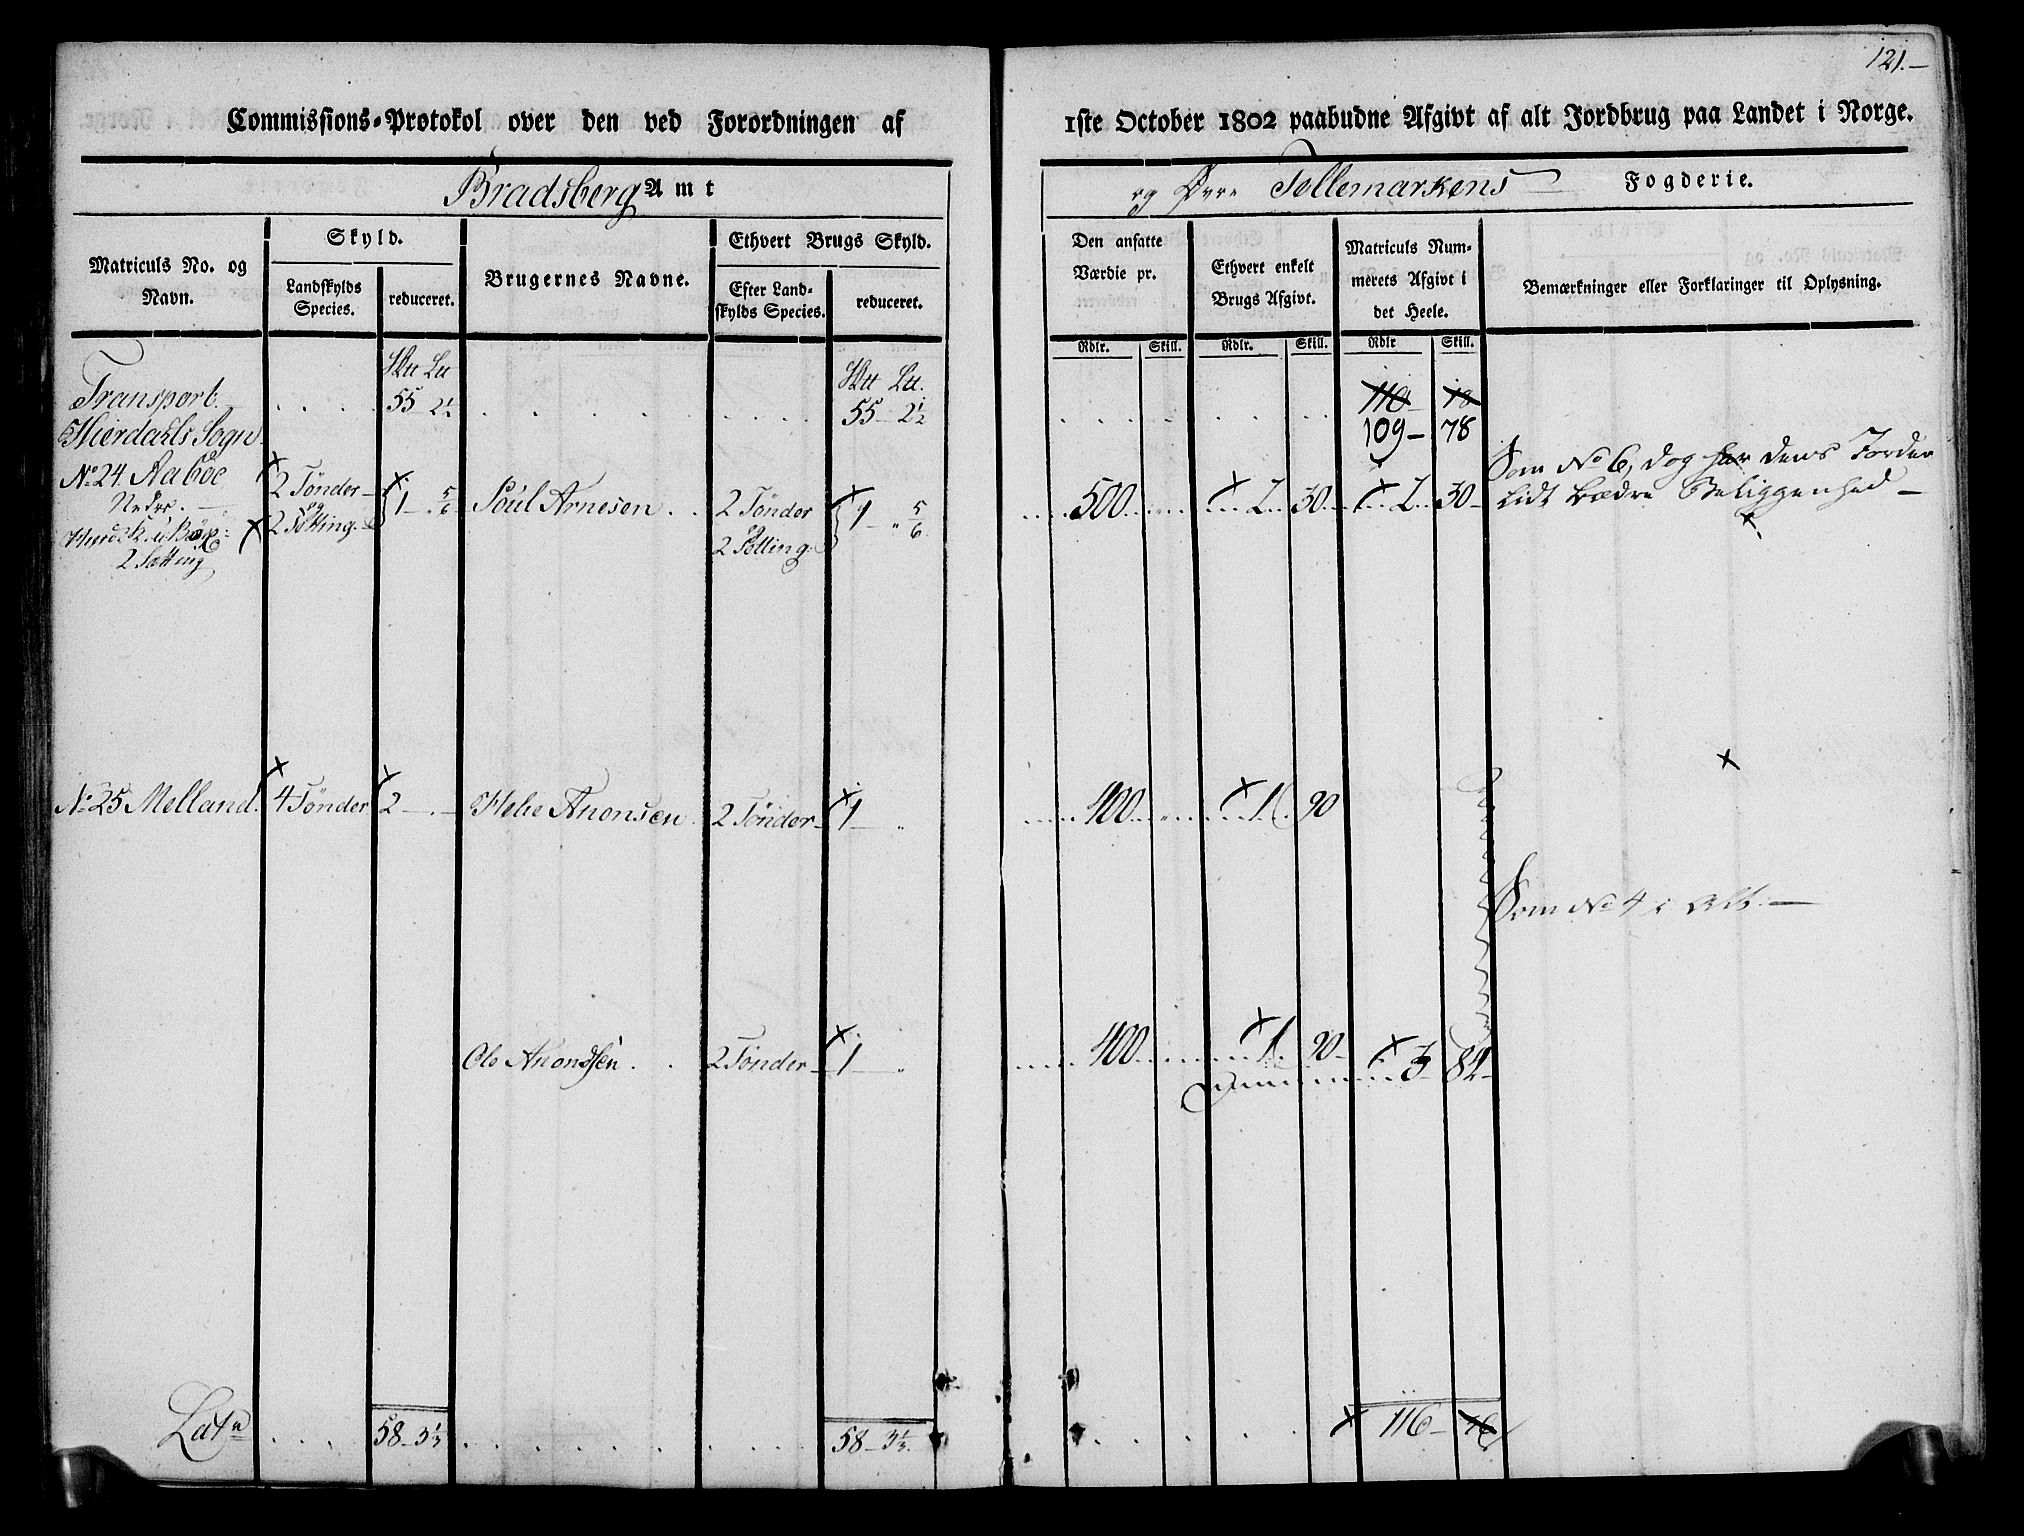 121.
Commissions-Protokol over den ved Forordningen af 1ste October 1802 paabudne Afgivt af alt Jordbrug paa Landet i Norge.
Bradsberg Amt
og Øvre Tellemarkens Fogderie.
Matriculs No. og Navn.
Skyld.
Landskylds Species.
reduceret.
Brugernes Navne.
Ethvert Brugs Skyld.
Efter Landskylds Species.
reduceret.
Den ansatte Værdie pr.
Ethvert enkelt Brugs Afgivt.
Matriculs Nummerets Afgivt i det Heele.
Bemærkninger eller Forklaringer til Oplysning.
Rdlr. Skill. Rdlr. Skill. Rdlr Skill.
Transport. 55 2½ 55 2½ 110 18
109 78
Hierdahls Sogn
No 24 Aaboe
Nedre.
2 Tønder og 2 Setting. 1 5/6 Poul Arnesen 2 Tønder og 2 Setting. 1 5/6 500 2 30 2 30
2 Setting
Som No 6, dog har dens Jorder
lidt bedre Beliggenhed
No 25 Melland. 4 Tønder 2 Helie Anonsen 2 Tønder 1 400 1 90
Som No 4 i Alt.
Ole Anondsen 2 Tønder 1 400 1 90 3 84
Lats 58 3⅓ 58 3⅓ 116